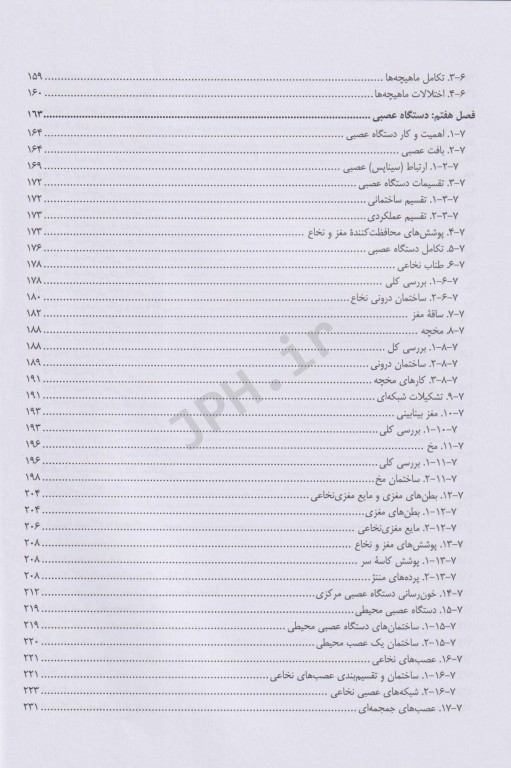 ۳-۶. تکامل ماهیچه‌ها ..... ۱۵۹
۴-۶. اختلالات ماهیچه‌ها ..... ۱۶۰
فصل هفتم: دستگاه عصبی ..... ۱۶۳
۱-۷. اهمیت و کار دستگاه عصبی ..... ۱۶۴
۲-۷. بافت عصبی ..... ۱۶۴
۱-۲-۷. ارتباط (سیناپس) عصبی ..... ۱۶۹
۳-۷. تقسیمات دستگاه عصبی ..... ۱۷۲
۱-۳-۷. تقسیم ساختمانی ..... ۱۷۲
۲-۳-۷. تقسیم عملکردی ..... ۱۷۳
۴-۷. پوشش‌های محافظت‌کنندهٔ مغز و نخاع ..... ۱۷۳
۵-۷. تکامل دستگاه عصبی ..... ۱۷۶
۶-۷. طناب نخاعی ..... ۱۷۸
۱-۶-۷. بررسی کلی ..... ۱۷۸
۲-۶-۷. ساختمان درونی نخاع ..... ۱۸۰
۷-۷. ساقهٔ مغز ..... ۱۸۲
۸-۷. مخچه ..... ۱۸۸
۱-۸-۷. بررسی کل ..... ۱۸۸
۲-۸-۷. ساختمان درونی ..... ۱۸۹
۳-۸-۷. کارهای مخچه ..... ۱۹۱
۹-۷. تشکیلات شبکه‌ای ..... ۱۹۱
۱۰-۷. مغز بینابینی ..... ۱۹۳
۱-۱۰-۷. بررسی کلی ..... ۱۹۳
۱۱-۷. مخ ..... ۱۹۶
۱-۱۱-۷. بررسی کلی ..... ۱۹۶
۲-۱۱-۷. ساختمان مخ ..... ۱۹۸
۱۲-۷. بطن‌های مغزی و مایع مغزی‌نخاعی ..... ۲۰۴
۱-۱۲-۷. بطن‌های مغزی ..... ۲۰۴
۲-۱۲-۷. مایع مغزی‌نخاعی ..... ۲۰۶
۱۳-۷. پوشش‌های مغز و نخاع ..... ۲۰۸
۱-۱۳-۷. پوشش کاسهٔ سر ..... ۲۰۸
۲-۱۳-۷. پرده‌های مننژ ..... ۲۰۸
۱۴-۷. خون‌رسانی دستگاه عصبی مرکزی ..... ۲۱۲
۱۵-۷. دستگاه عصبی محیطی ..... ۲۱۹
۱-۱۵-۷. ساختمان‌های دستگاه عصبی محیطی ..... ۲۱۹
۲-۱۵-۷. ساختمان یک عصب محیطی ..... ۲۲۰
۱۶-۷. عصب‌های نخاعی ..... ۲۲۱
۱-۱۶-۷. ساختمان و تقسیم‌بندی عصب‌های نخاعی ..... ۲۲۱
۲-۱۶-۷. شبکه‌های عصبی نخاعی ..... ۲۲۳
۱۷-۷. عصب‌های جمجمه‌ای ..... ۲۳۱
JPH.ir